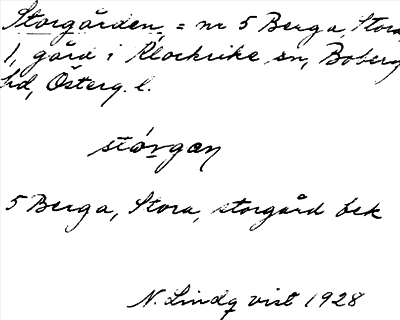 Storgården = nr 5 Berga, Stora
1, gård i Klockrike sn, Boberg
hd, Österg. l.
stórgan
5 Berga, Stora, storgård bek
N. Lindq vist 1928